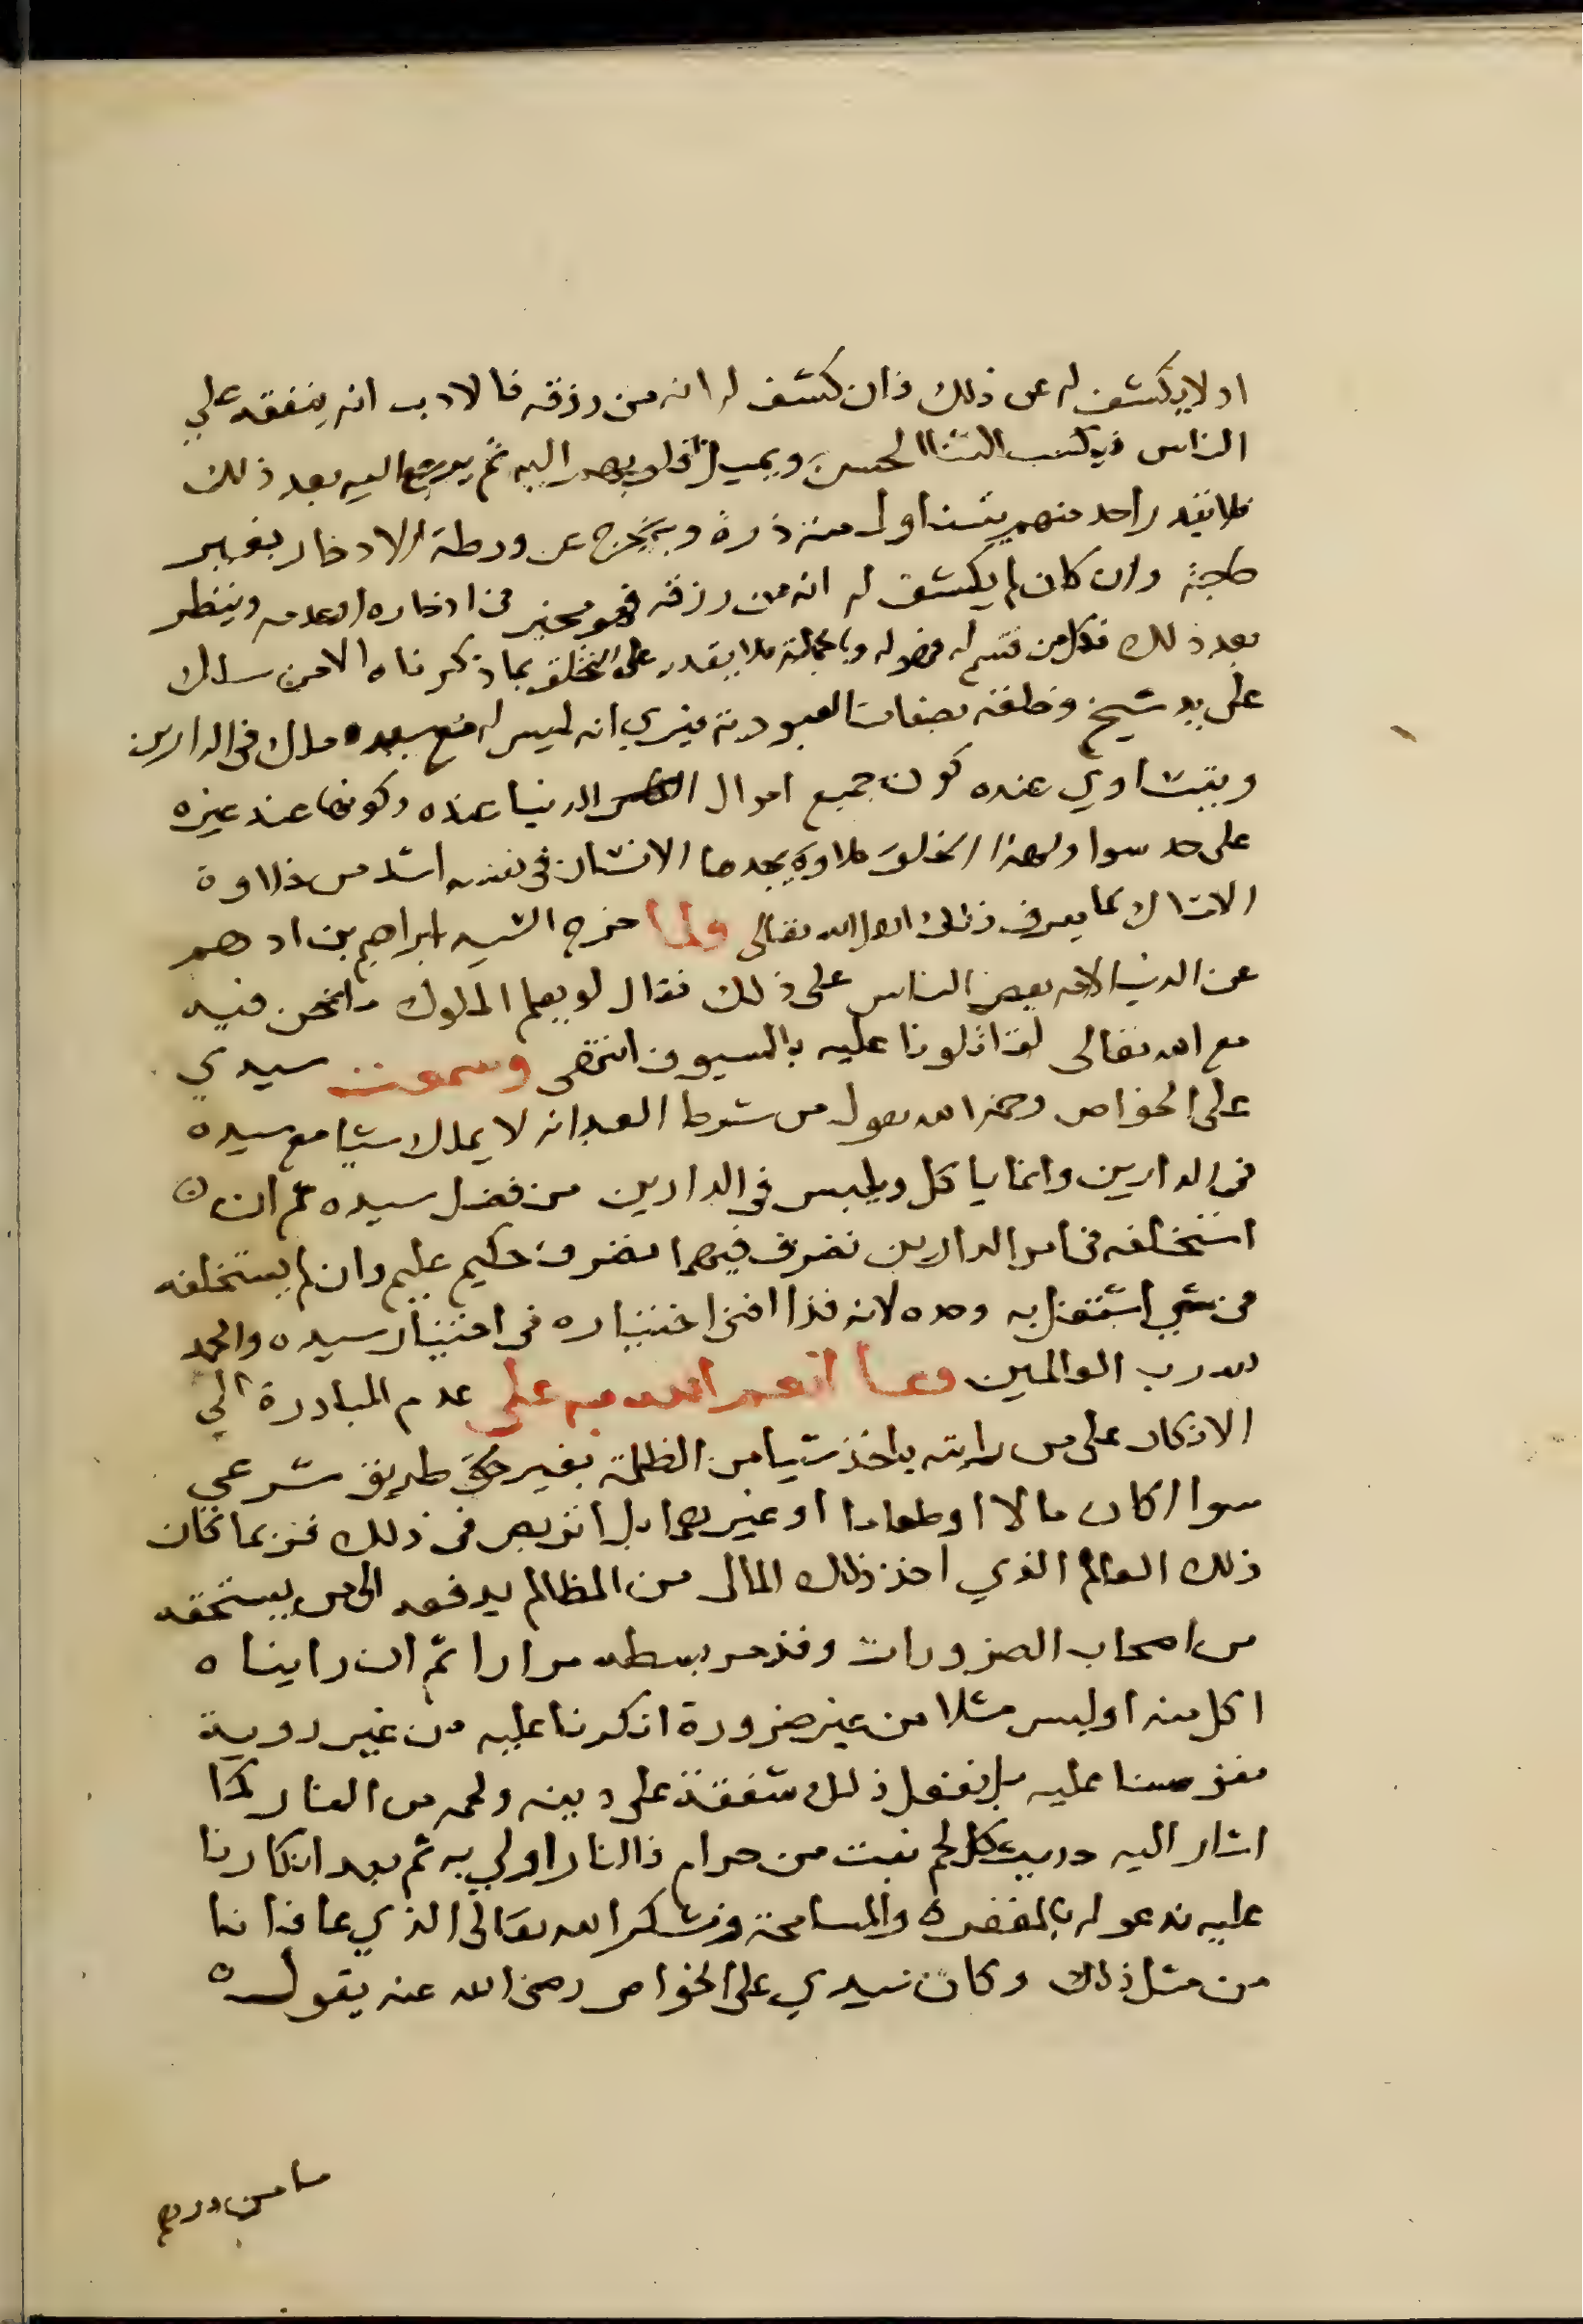 او لا يكشف له عن ذلك فان كشف له انه من رزقه فالادب انه ينفقه علي
الناس فيكسب الثنا الحسن ويميل قلوبهم اليه ثم يرجع اليه بعد ذلك
فلا يقدر احد منهم يتناول منه ذرة ويخرج عن ورطة الادخار بغير
حاجة وان كان لم يكشف له انه من رزقه فهو مخير في ادخاره وعدمه وينظر
بعد ذلك فكل من قسم له فهو له وبالجملة فلا يقدر على التخلق بما ذكرناه الا من سلك
على يد شيخ وخلفه بصفات العبودية فيري انه ليس له مع سيده ملك في الدارين
ويتساوي عنده كون جميع اموال الدنيا عنده وكونها عند غيره
على حد سوا ولهذا الخلق حلاوة يجدها الانسان في نفسه اشد من حلاوة
الامتلاك كما يعرف ذلك اهل الله تعالى ولما خرج السيد ابراهيم بن ادهم
عن الدنيا لامه بعض الناس على ذلك فقال لو يعلم الملوك ما نحن فيه
مع الله تعالى لقاتلونا عليه بالسيوف انتهى وسمعت سيدي
على الخواص رحمه الله يقول من شرط العبد انه لا يملك شيا مع سيده
في الدارين وانما ياكل ويلبس في الدارين من فضل سيده ثم ان
استخلفه في امر الدارين تصرف فيهما تصرف حكيم عليم وان لم يستخلفه
في شي اشتغل به وحده لانه قد افنى اختياره في اختيار سيده والحمد
لله رب العالمين ومما انعم الله به علي عدم المبادرة الي
الانكار على من رايته ياخذ شيا من الظلمة بغير حق طريق شرعي
سوا اكان مالا او طعاما او غيرهما بل اتربص في ذلك فربما كان
ذلك العالم الذي اخذ ذلك المال من المظالم يدفعه الى من يستحقه
من اصحاب الضرورات وقد مر بسطه مرارا ثم ان رايناه
اكل منه او لبس مثلا من غير ضرورة انكرنا عليه من غير روية
نفوسنا عليه بل نفعل ذلك شفقة على دينه ولحمه من النار كما
اشار اليه حديث كل لحم نبت من حرام فالنار اولي به ثم بعد انكارنا
عليه ندعو له بالمغفرة والمسامحة ونشكر الله تعالى الذي عافانا
من مثل ذلك وكان سيدي على الخواص رضى الله عنه يقول
ما من درهم